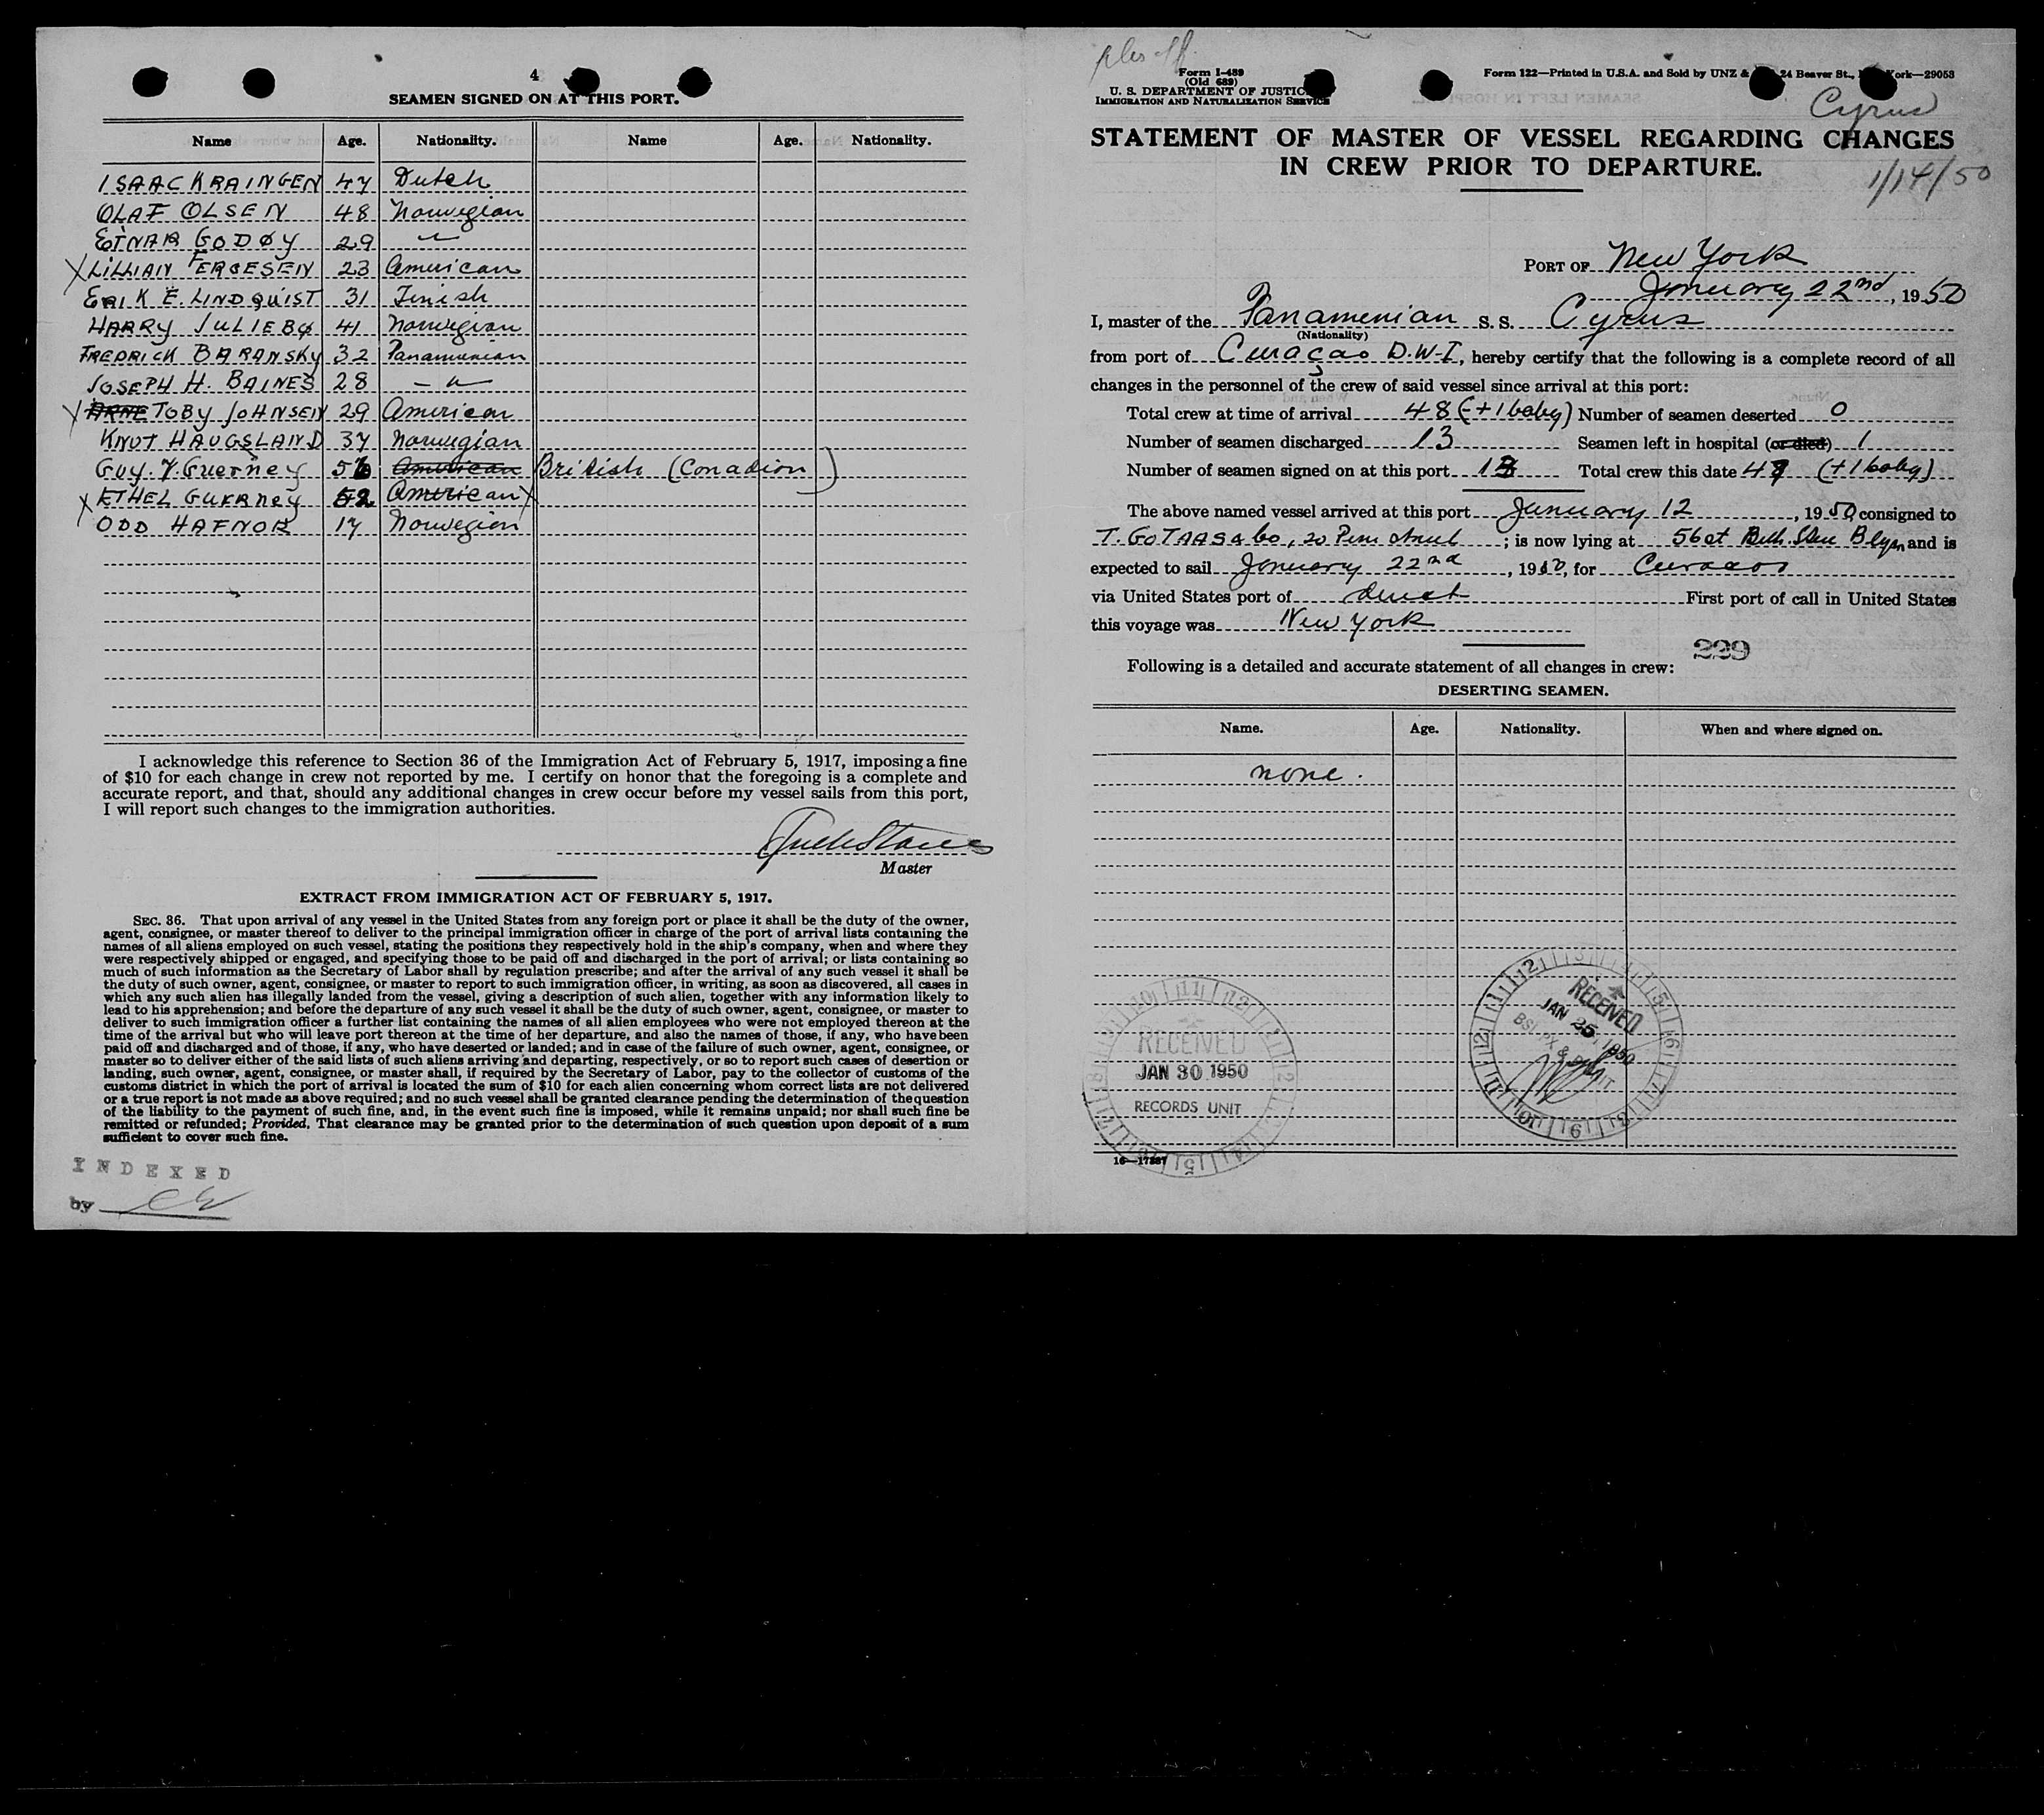 4
SEAMEN SIGNED ON AT THIS PORT.
Name Age. Nationality. Name Age. Nationality.
ISAAC KRAINGEN 47 Dutch
OLAF OLSEN 48 Norwegian
EINAR GODØY 29 "
X LILLIAN FERGESEN 23 American
ERIK E. LINDQUIST 31 Finish
HARRY JULIEBØ 41 Norwegian
FREDRICK BARANSKY 32 Panamenian
JOSEPH H. BAINES 28 - " -
X ARNE TOBY JOHNSEN 29 American
KNUT HAUGSLAND 37 Norwegian
Guy. F. Guerney 56 American British (Canadian)
X ETHEL GUERNEY 52 American X
ODD HAFNOR 17 Norwegian
I acknowledge this reference to Section 36 of the Immigration Act of February 5, 1917, imposing a fine
of $10 for each change in crew not reported by me. I certify on honor that the foregoing is a complete and
accurate report, and that, should any additional changes in crew occur before my vessel sails from this port,
I will report such changes to the immigration authorities.
Master
EXTRACT FROM IMMIGRATION ACT OF FEBRUARY 5, 1917.
SEC. 36. That upon arrival of any vessel in the United States from any foreign port or place it shall be the duty of the owner,
agent, consignee, or master thereof to deliver to the principal immigration officer in charge of the port of arrival lists containing the
names of all aliens employed on such vessel, stating the positions they respectively hold in the ship's company, when and where they
were respectively shipped or engaged, and specifying those to be paid off and discharged in the port of arrival; or lists containing so
much of such information as the Secretary of Labor shall by regulation prescribe; and after the arrival of any such vessel it shall be
the duty of such owner, agent, consignee, or master to report to such immigration officer, in writing, as soon as discovered, all cases in
which any such alien has illegally landed from the vessel, giving a description of such alien, together with any information likely to
lead to his apprehension; and before the departure of any such vessel it shall be the duty of such owner, agent, consignee, or master to
deliver to such immigration officer a further list containing the names of all alien employees who were not employed thereon at the
time of the arrival but who will leave port thereon at the time of her departure, and also the names of those, if any, who have been
paid off and discharged and of those, if any, who have deserted or landed; and in case of the failure of such owner, agent, consignee, or
master so to deliver either of the said lists of such aliens arriving and departing, respectively, or so to report such cases of desertion or
landing, such owner, agent, consignee, or master shall, if required by the Secretary of Labor, pay to the collector of customs of the
customs district in which the port of arrival is located the sum of $10 for each alien concerning whom correct lists are not delivered
or a true report is not made as above required; and no such vessel shall be granted clearance pending the determination of the question
of the liability to the payment of such fine, and, in the event such fine is imposed, while it remains unpaid; nor shall such fine be
remitted or refunded; Provided, That clearance may be granted prior to the determination of such question upon deposit of a sum
sufficient to cover such fine.
INDEXED
by
Form I-489
(Old 689)
U. S. DEPARTMENT OF JUSTICE
IMMIGRATION AND NATURALIZATION SERVICE
Form 122—Printed in U.S.A. and Sold by UNZ & 24 Beaver St., York—29053
Cyrus
STATEMENT OF MASTER OF VESSEL REGARDING CHANGES
IN CREW PRIOR TO DEPARTURE.
1/14/50
PORT OF New York
January 22nd, 1950
I, master of the Panamenian S. S. Cyrus
(Nationality)
from port of Curaçao D.W-I, hereby certify that the following is a complete record of all
changes in the personnel of the crew of said vessel since arrival at this port:
Total crew at time of arrival 48 (+1 baby) Number of seamen deserted 0
Number of seamen discharged 13 Seamen left in hospital (or died) 1
Number of seamen signed on at this port 13 Total crew this date 47 (+1 baby)
The above named vessel arrived at this port January 12, 1950, consigned to
T. GOTAAS & Co, 20 Pine Street; is now lying at 56 st Beth. Stee Blyn and is
expected to sail January 22nd, 1950, for Curacao
via United States port of direct First port of call in United States
this voyage was New York
229
Following is a detailed and accurate statement of all changes in crew:
DESERTING SEAMEN.
Name. Age. Nationality. When and where signed on.
none.
RECEIVED
JAN 30 1950
RECORDS UNIT
RECEIVED
JAN 25 1950
16—17287